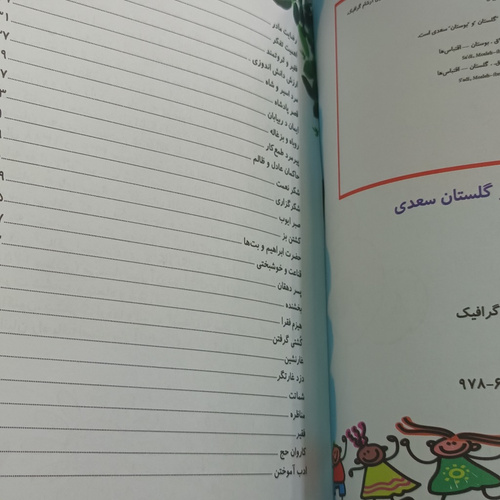 رضایت مادر
اهمیت تفکر
فقیر و ثروتمند
ارزش دانش اندوزی
مرد اسیر و شاه
قصر پادشاه
ایمان در بیابان
روباه و بزغاله
پیرمرد طمع‌کار
حاکمان عادل و ظالم
شکر نعمت
شکرگزاری
صبر ایوب
کشتن بز
حضرت ابراهیم و بت‌ها
قناعت و خوشبختی
پسر دهقان
بخشنده
هیزم فقرا
کُشتی گرفتن
غارنشین
دزد غارتگر
شماتت
مناظره
فقیر
کاروان حج
ادب آموختن
گلستان و بوستان سعدی است.
بوستان -- اقتباس‌ها
گلستان -- اقتباس‌ها
گلستان سعدی
گرافیک
۹۷۸-۶